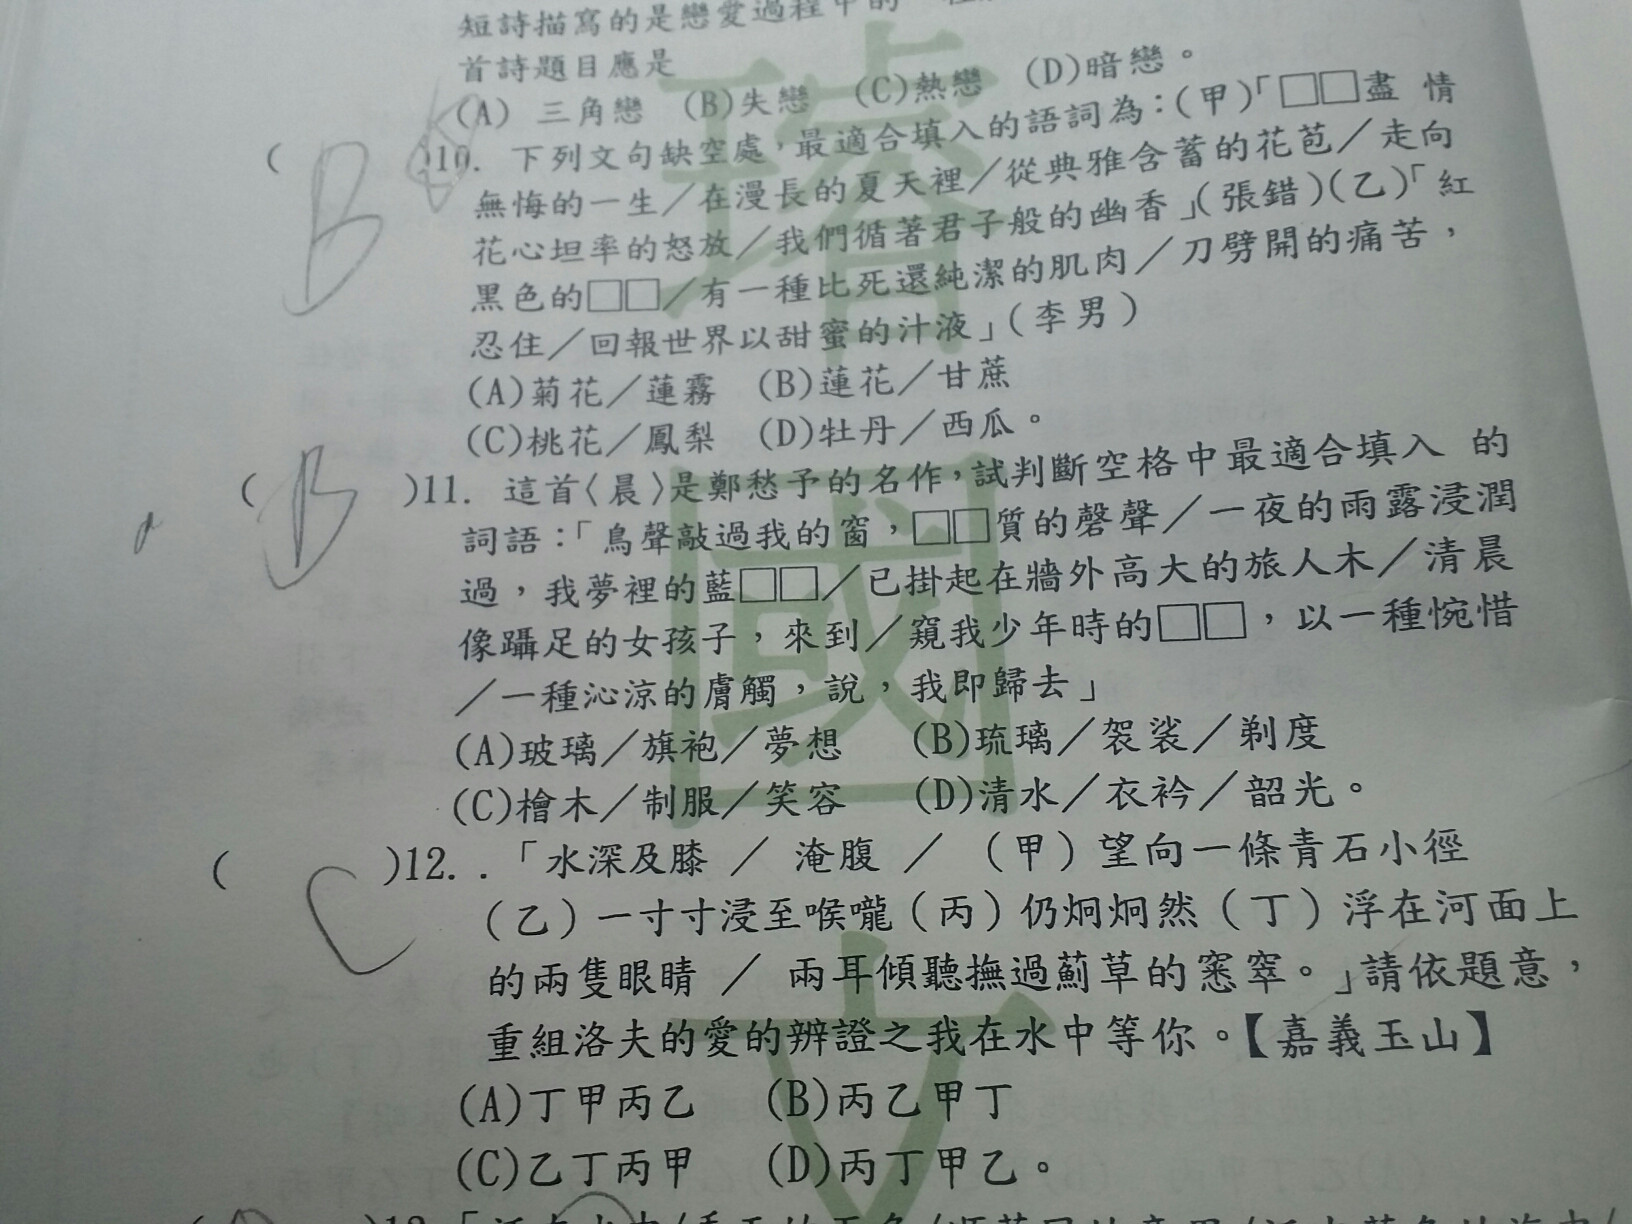 短詩描寫的是戀愛過程中的
首詩題目應是
(A) 三角戀 (B)失戀 (C)熱戀 (D)暗戀。
( B )10. 下列文句缺空處，最適合填入的語詞為：(甲)「□□盡 情
無悔的一生／在漫長的夏天裡／從典雅含蓄的花苞／走向
花心坦率的怒放／我們循著君子般的幽香」(張錯)(乙)「紅
黑色的□□／有一種比死還純潔的肌肉／刀劈開的痛苦，
忍住／回報世界以甜蜜的汁液」(李男)
(A)菊花／蓮霧 (B)蓮花／甘蔗
(C)桃花／鳳梨 (D)牡丹／西瓜。
( B )11. 這首〈晨〉是鄭愁予的名作，試判斷空格中最適合填入 的
詞語：「鳥聲敲過我的窗，□□質的磬聲／一夜的雨露浸潤
過，我夢裡的藍□□／已掛起在牆外高大的旅人木／清晨
像躡足的女孩子，來到／窺我少年時的□□，以一種惋惜
／一種沁涼的膚觸，說，我即歸去」
(A)玻璃／旗袍／夢想 (B)琉璃／袈裟／剃度
(C)檜木／制服／笑容 (D)清水／衣衿／韶光。
( C )12. .「水深及膝 ／ 淹腹 ／ (甲)望向一條青石小徑
(乙)一寸寸浸至喉嚨(丙)仍炯炯然(丁)浮在河面上
的兩隻眼睛 ／ 兩耳傾聽撫過薊草的窸窣。」請依題意，
重組洛夫的愛的辨證之我在水中等你。【嘉義玉山】
(A)丁甲丙乙 (B)丙乙甲丁
(C)乙丁丙甲 (D)丙丁甲乙。
璿
國
文